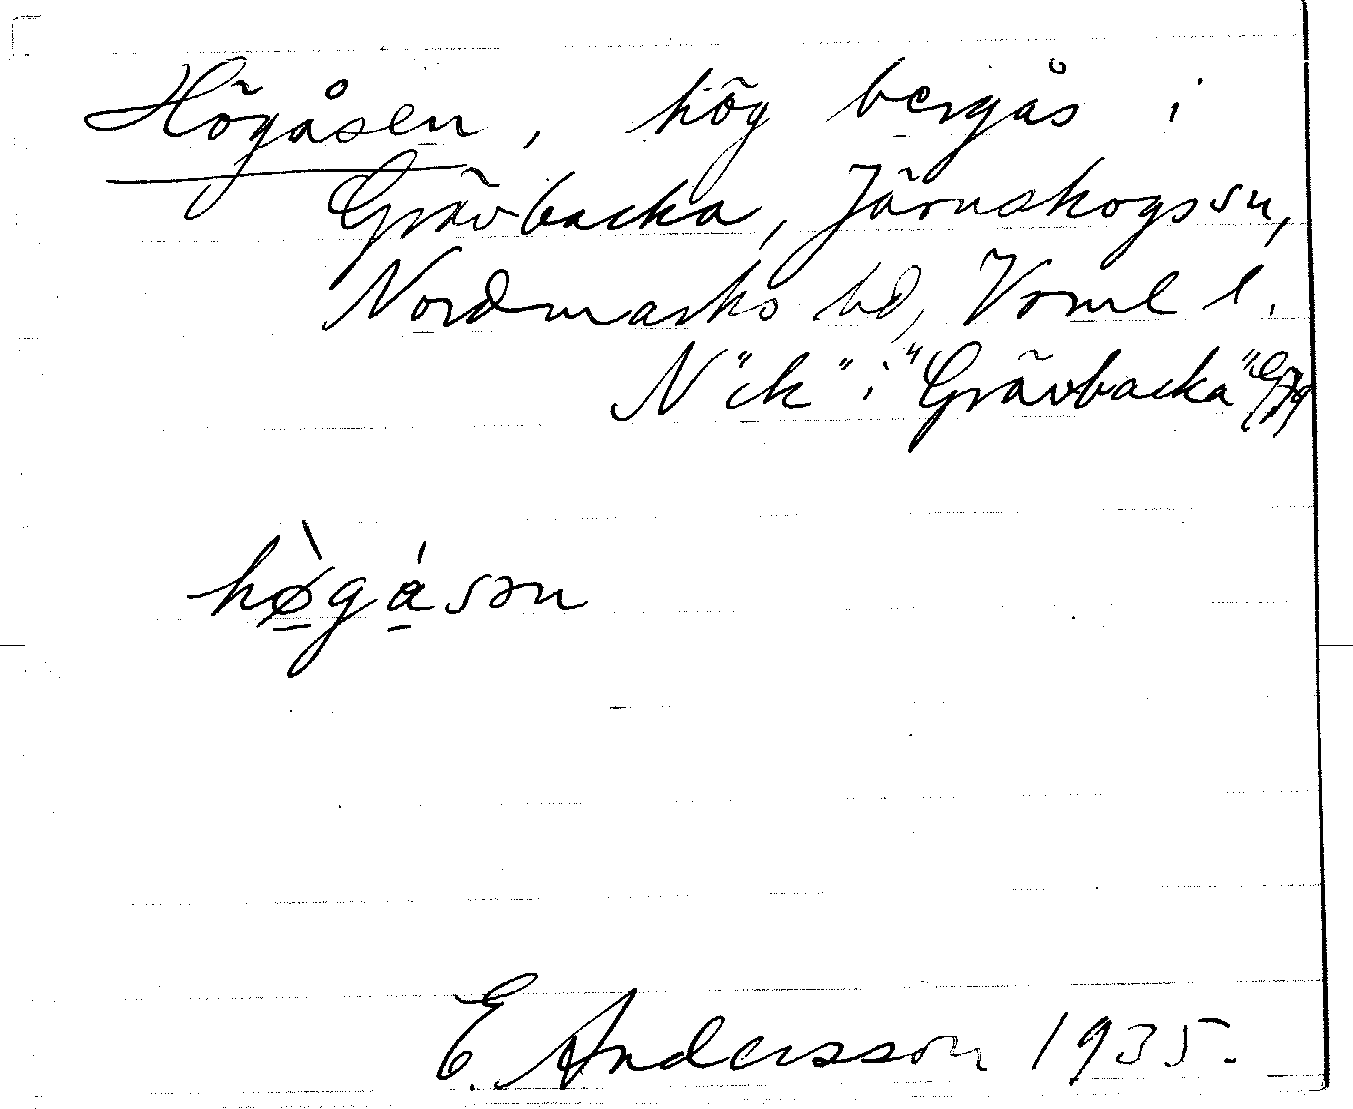 Högåsen, hög bergås i
Grävbacka, Järnskogs sn,
Nordmarks hd, Vrml l.
N "ck" i "Grävbacka"
hø̀gásən
E. Andersson 1935.